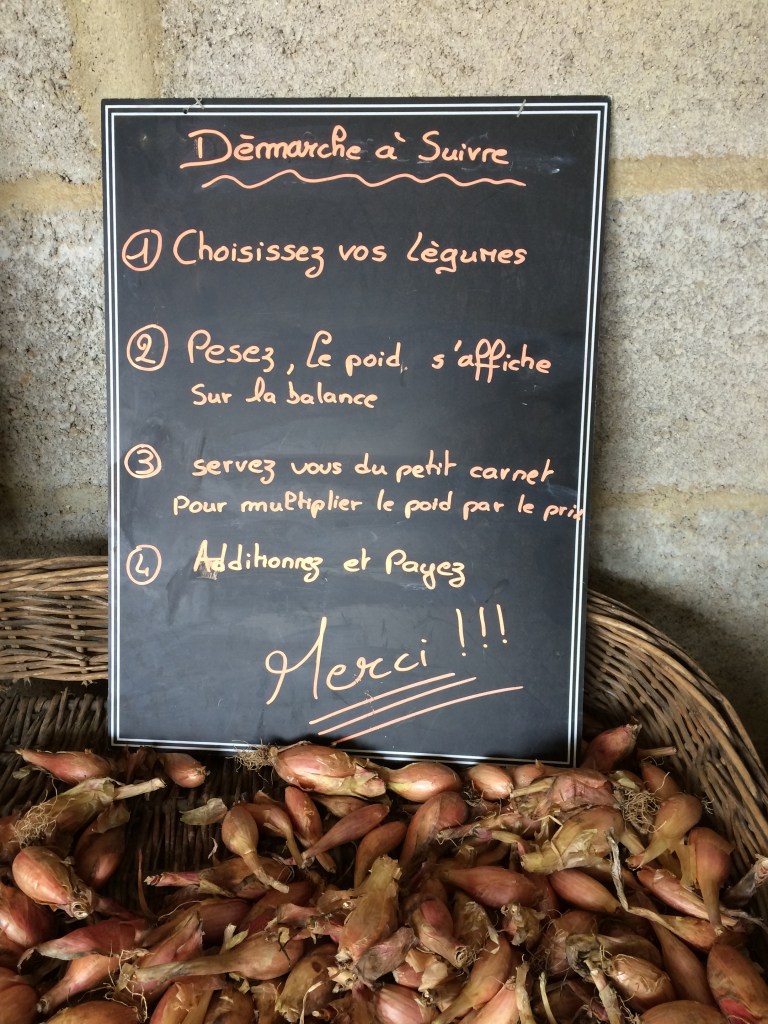 Dèmarche à Suivre
1 Choisissez vos Lègumes
2 Pesez, Le poid s'affiche
Sur la balance
3 servez vous du petit carnet
Pour multiplier le poid par le prix
4 Additionnez et Payez
Merci !!!